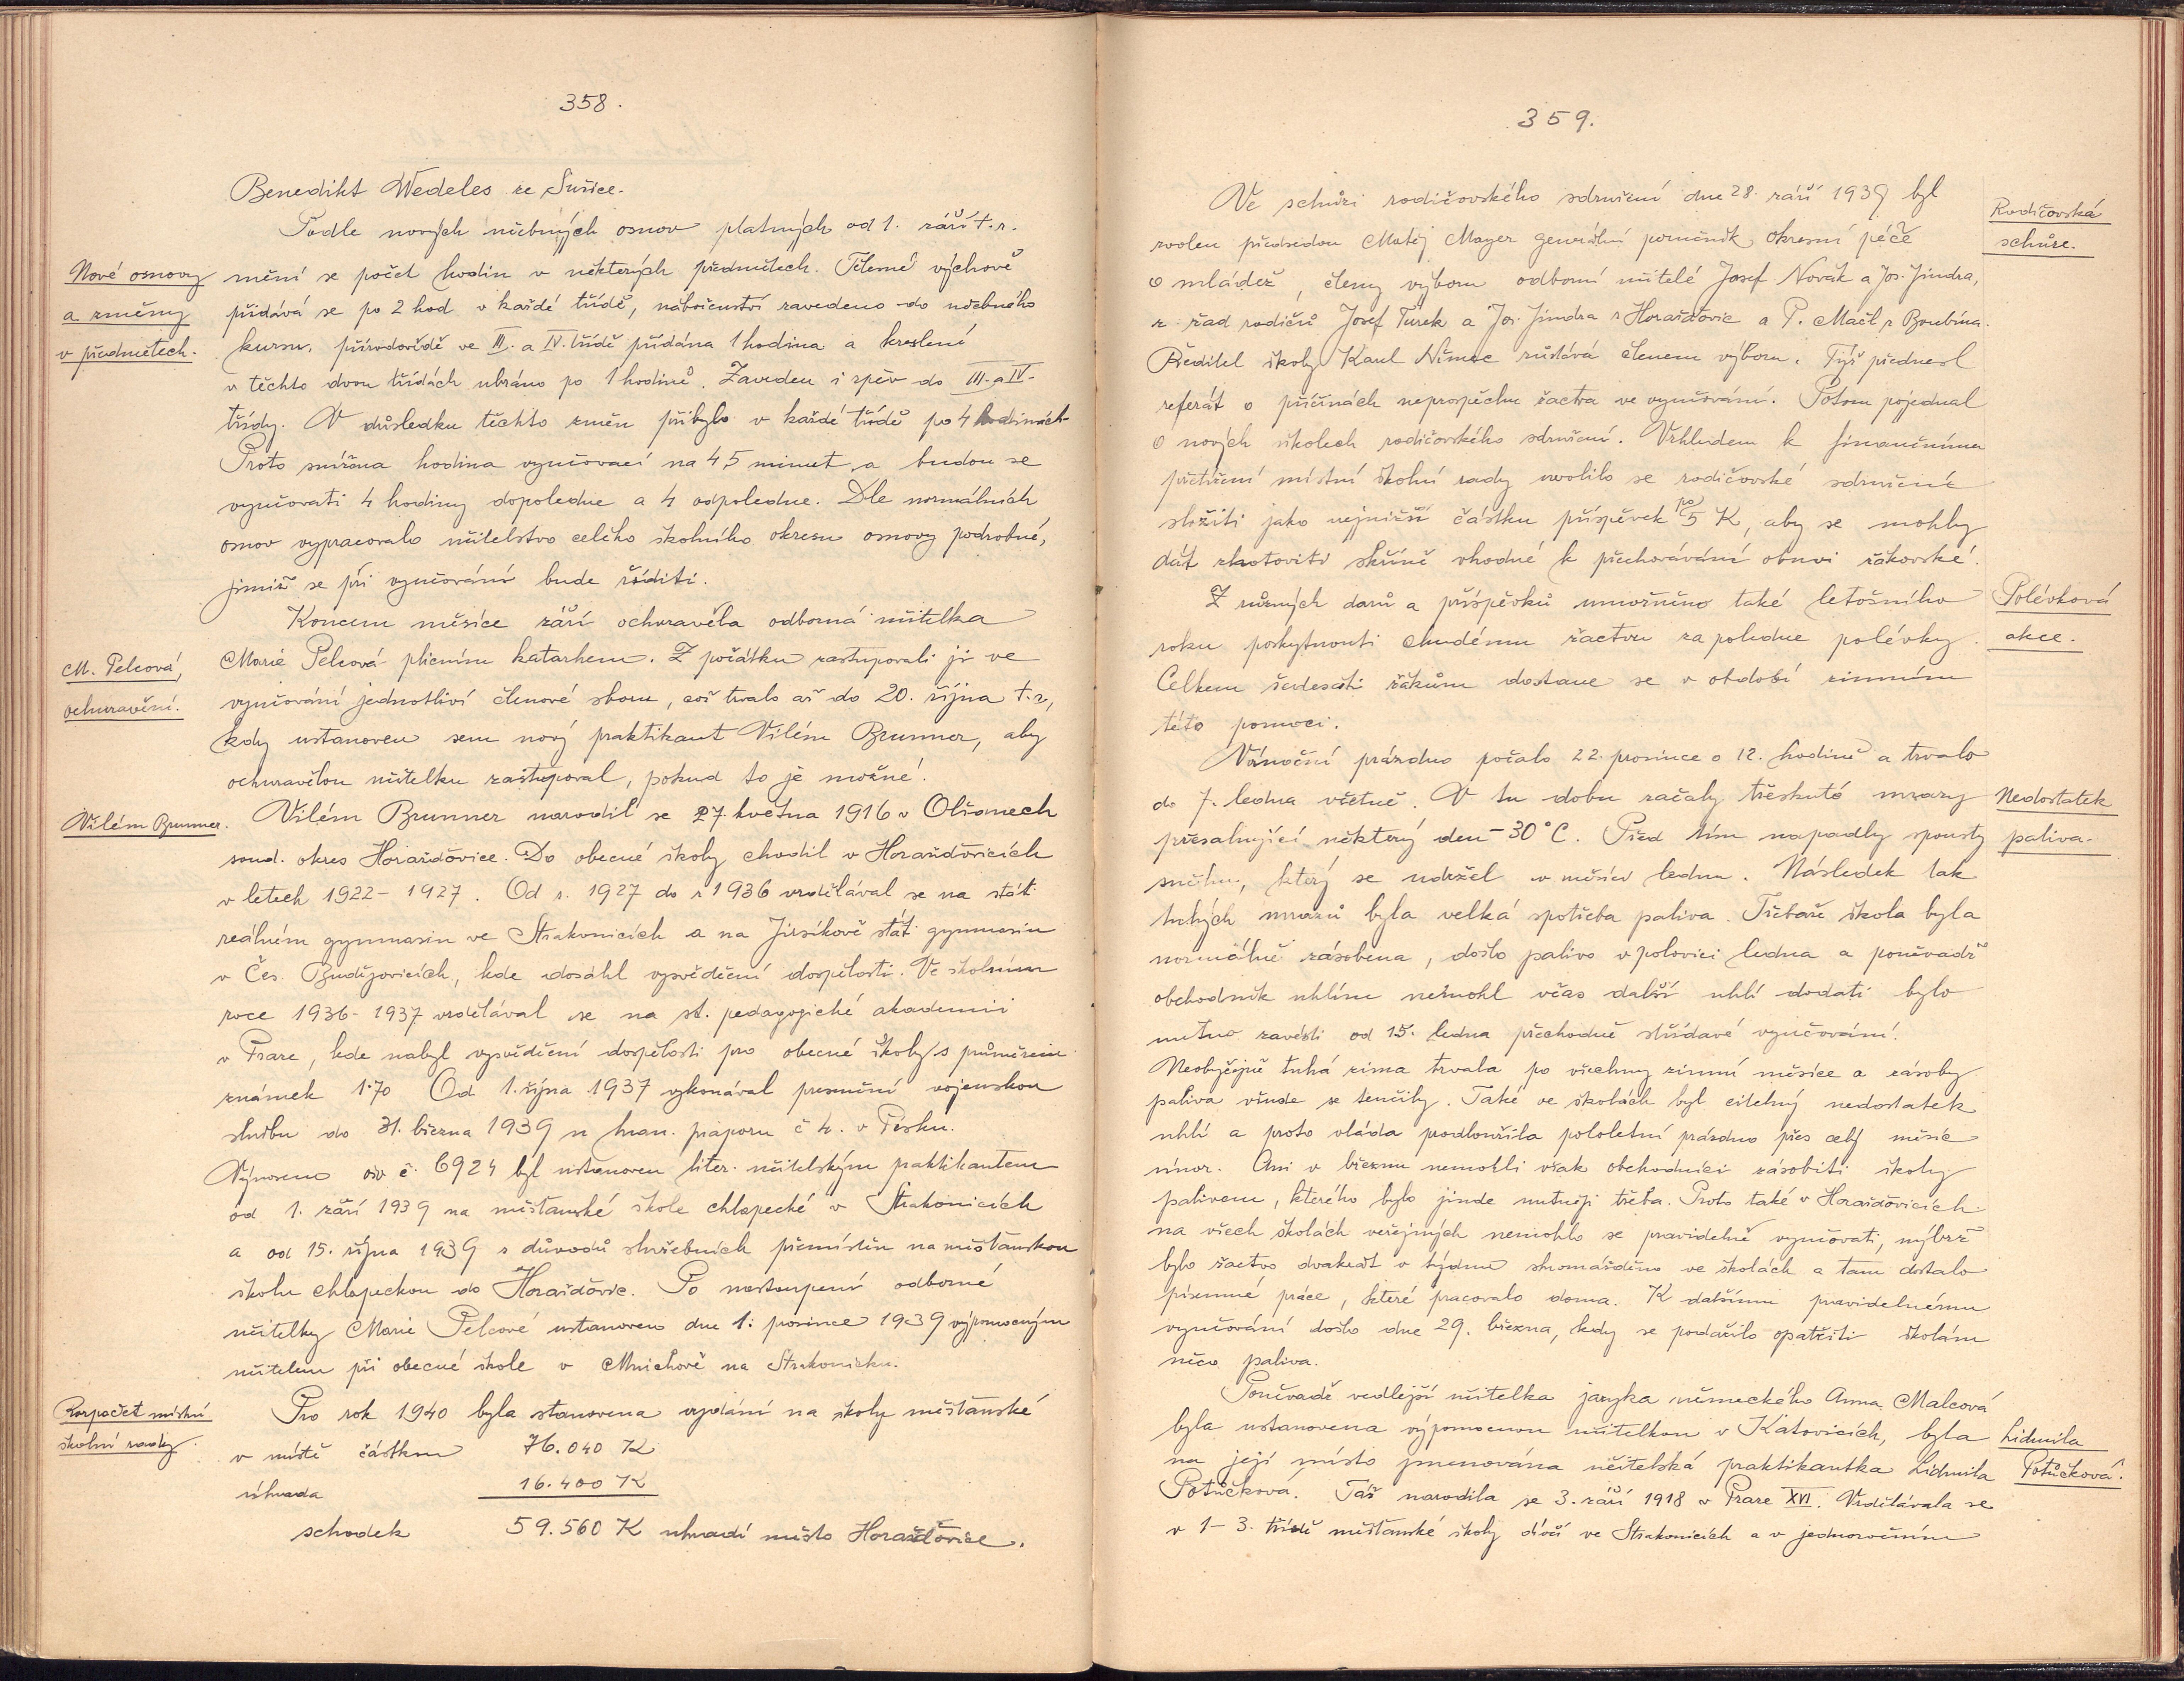 358.
Benedikt Wedeles ze Sušice.
Podle nových učebných osnov platných od 1. září t.r.
Nové osnovy
a změny
v předmětech.
mění se počet hodin v některých předmětech. Tělesné výchově
přidává se po 2 hod v každé třídě, náboženství zavedeno do učebného
kursu, přírodovědě ve III. a IV. třídě přidána 1 hodina a kreslení
v těchto dvou třídách ubráno po 1 hodině. Zaveden i zpěv do III. a IV.
třídy. V důsledku těchto změn přibylo v každé třídě po 4 hodinách
Proto snížena hodina vyučovací na 45 minut a budou se
vyučovati 4 hodiny dopoledne a 4 odpoledne. Dle normálních
osnov vypracovalo učitelstvo celého školního okresu osnovy podrobné,
jimiž se při vyučování bude říditi.
Koncem měsíce září ochuravěla odborná učitelka
M. Pelcová,
ochuravění.
Marie Pelcová plicním katarhem. Z počátku zastupovali ji ve
vyučování jednotliví členové sboru, což trvalo až do 20. října t.r.,
kdy ustanoven sem nový praktikant Vilém Brunner, aby
ochuravělou učitelku zastupoval, pokud to je možné.
Vilém Brunner.
Vilém Brunner narodil se 27. května 1916 v Olšanech
soud. okres Horažďovice. Do obecné školy chodil v Horažďovicích
v letech 1922-1927. Od r. 1927 do r 1936 vzdělával se na stát.
reálném gymnasiu ve Strakonicích a na Jirsíkově stát. gymnasiu
v Čes. Budějovicích, kde dosáhl vysvědčení dospělosti. Ve školním
roce 1936-1937 vzdělával se na st. pedagogické akademii
v Praze, kde nabyl vysvědčení dospělosti pro obecné školy s průměrem
známek 1·70 Od 1. října 1937 vykonával presenční vojenskou
službu do 31. března 1939 u hran. praporu č 4. v Písku.
Výnosem ošv č. 6924 byl ustanoven liter. učitelským praktikantem
od 1. září 1939 na měšťanské škole chlapecké v Strakonicích
a od 15. října 1939 z důvodů služebních přemístěn na měšťanskou
školu chlapeckou do Horažďovic. Po nastoupení odborné
učitelky Marie Pelcové ustanoven dne 1. prosince 1939 výpomocným
učitelem při obecné škole v Mnichově na Strakonicku.
Rozpočet místní
školní rady.
Pro rok 1940 byla stanovena vydání na školy měšťanské
v místě částkou 76.040 K
úhrada 16.400 K
schodek 59.560 K uhradí město Horažďovice.
359.
Ve schůzi rodičovského sdružení dne 28. září 1939 byl
Rodičovská
schůze.
zvolen předsedou Matěj Mayer generální poručník okresní péče
o mládež, členy výboru odborní učitelé Josef Novák a Jos. Jindra,
z řad rodičů Josef Turek a Jos. Jindra z Horažďovic a P. Mačl z Boubína.
Ředitel školy Karel Němec zůstává členem výboru. Týž přednesl
referát o příčinách neprospěchu žactva ve vyučování. Potom pojednal
o nových úkolech rodičovského sdružení. Vzhledem k finančnímu
přetížení místní školní rady uvolilo se rodičovské sdružené
složiti jako nejnižší částku příspěvek po 5 K, aby se mohly
dát zhotoviti skříně vhodné k přechovávání obuvi žákovské.
Z různých darů a příspěvků umožněno také letošního
Polévková
akce.
roku poskytnouti chudému žactvu za poledne polévky.
Celkem šedesáti žákům dostane se v období zimním
této pomoci.
Vánoční prázdno počalo 22. prosince o 12. hodině a trvalo
do 7. ledna včetně. V tu dobu začaly třeskuté mrazy
Nedostatek
paliva.
přesahující některý den -30°C. Před tím napadly spousty
sněhu, který se udržel v měsíci lednu. Následek tak
tuhých mrazů byla velká spotřeba paliva. Třebaže škola byla
normálně zásobena, došlo palivo v polovici ledna a poněvadž
obchodník uhlím nemohl včas další uhlí dodati bylo
nutno zavésti od 15. ledna přechodně střídavé vyučování.
Neobyčejně tuhá zima trvala po všechny zimní měsíce a zásoby
paliva všude se tenčily. Také ve školách byl citelný nedostatek
uhlí a proto vláda prodloužila pololetní prázdno přes celý měsíc
únor. Ani v březnu nemohli však obchodníci zásobiti školy
palivem, kterého bylo jinde nutněji třeba. Proto také v Horažďovicích
na všech školách veřejných nemohlo se pravidelně vyučovati, nýbrž
bylo žactvo dvakrát v týdnu shromážděno ve školách a tam dostalo
písemné práce, které pracovalo doma. K dalšímu pravidelnému
vyučování došlo dne 29. března, kdy se podařilo opatřiti školám
něco paliva.
Poněvadž vedlejší učitelka jazyka německého Anna Malcová
byla ustanovena výpomocnou učitelkou v Katovicích, byla
Lidmila
Potůčková.
na její místo jmenována učitelská praktikantka Lidmila
Potůčková. Táž narodila se 3. září 1918 v Praze XVI. Vzdělávala se
v 1-3. třídě měšťanské školy dívčí ve Strakonicích a v jednoročním